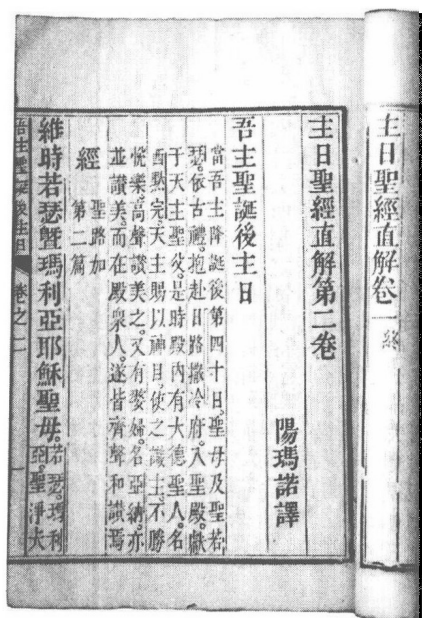 主日聖經直解卷一終
主日聖經直解第二卷
陽瑪諾譯
吾主聖誕後主日
當吾主降誕後第四十日。聖母及聖若
瑟。依古禮。抱赴日路撒冷府。入聖殿。獻
于天主聖父。是時殿内有大德聖人。名
西默完。天主賜以神目。使之識主。不勝
悅樂。高聲讃美之。又有嫠婦。名亞納。亦
並讃美。而在殿衆人。遂皆齊聲和讃焉
經 聖路加
第二篇
維時若瑟曁瑪利亞耶穌聖母。若瑟。瑪利
亞。聖淨夫
吾主聖誕後主日 卷之二 一